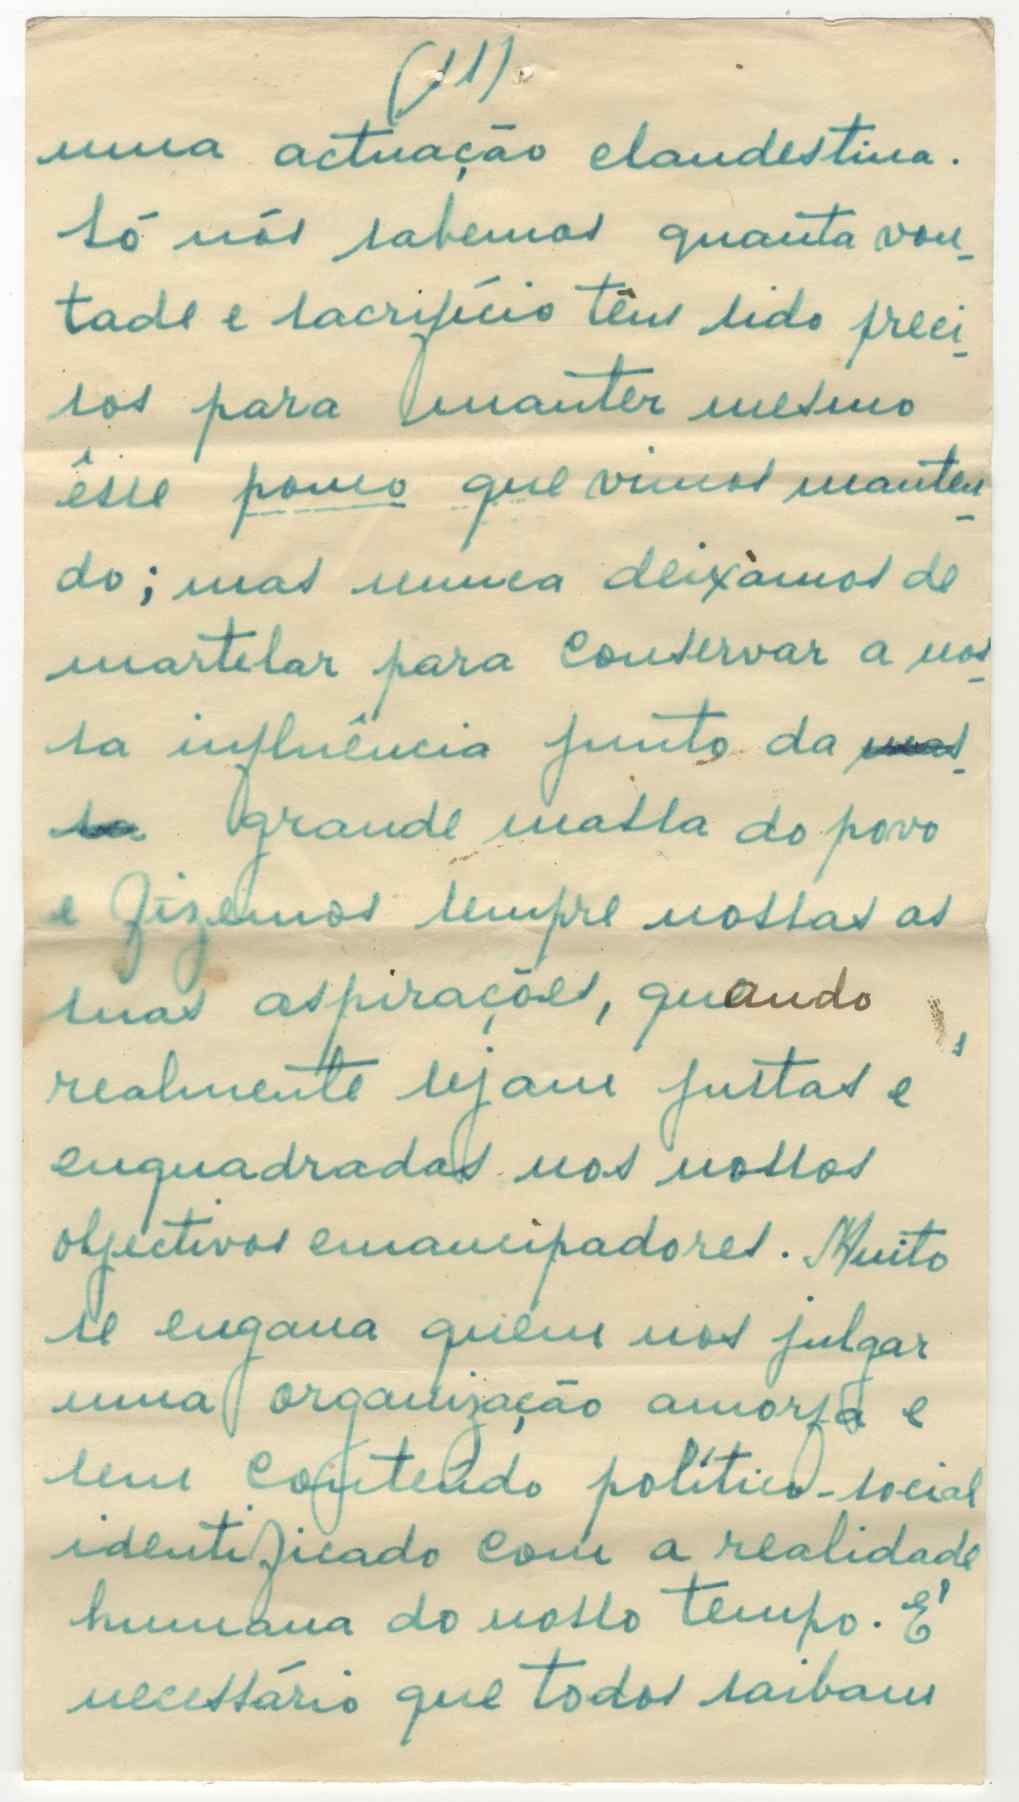 (11)
numa actuação clandestina.
Só nós sabemos quanta von-
tade e sacrifício têm sido preci-
sos para manter mesmo
êsse pouco que vimos manten-
do; mas nunca deixàmos de
martelar para conservar a nos-
sa influência junto da mas-
sa grande massa do povo
e fizemos sempre nossas as
suas aspirações, quando
realmente sejam justas e
enquadradas nos nossos
objectivos emancipadores. Muito
se engana quem nos julgar
uma organização amorfa e
sem conteúdo político-social
identificado com a realidade
humana do nosso tempo. É
necessário que todos saibam